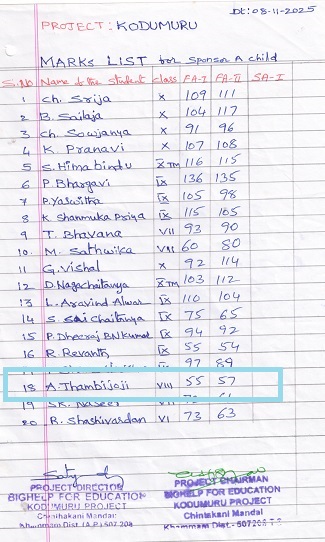 Dt: 08-11-2025
PROJECT: KODUMURU
MARKS LIST for Sponsor A child
S.No Name of the student class FA-I FA-II SA-I
1 Ch. Srija X 109 111
2 B. Sailaja X 104 117
3 Ch. Sowjanya X 91 96
4 K. Pranavi X 107 108
5 S. Hima bindu X TM 116 115
6 P. Bhargavi IX 136 135
7 P. Yaswitha IX 105 98
8 K Shanmuka Priya IX 115 105
9 T. Bhavana VII 93 90
10 M. Sathwika VII 60 80
11 G. Vishal X 92 114
12 D. Nagachaitanya X TM 103 112
13 L. Aravind Alwar IX 110 104
14 S. Sai Chaitanya IX 75 65
15 P. Dheeraj B.N.kumar IX 94 92
16 R. Revanth IX 55 54
IX 97 89
18 A. Thambi joji VIII 55 57
19 SK. Naseer VI
20 R. Shashivardan VI 73 63
PROJECT DIRECTOR
BIGHELP FOR EDUCATION
KODUMURU PROJECT
Chinthakani Mandal
Khammam Dist. (A.P) 507 208
PROJECT CHAIRMAN
BIGHELP FOR EDUCATION
KODUMURU PROJECT
Chintakani Mandal
Khammam Dist. - 507208 TS